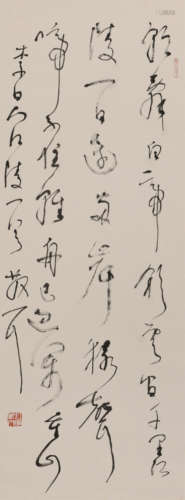 朝辭白帝彩雲間千里江
陵一日還兩岸猿聲
啼不住輕舟已過萬重山
李白江陵一首散耳